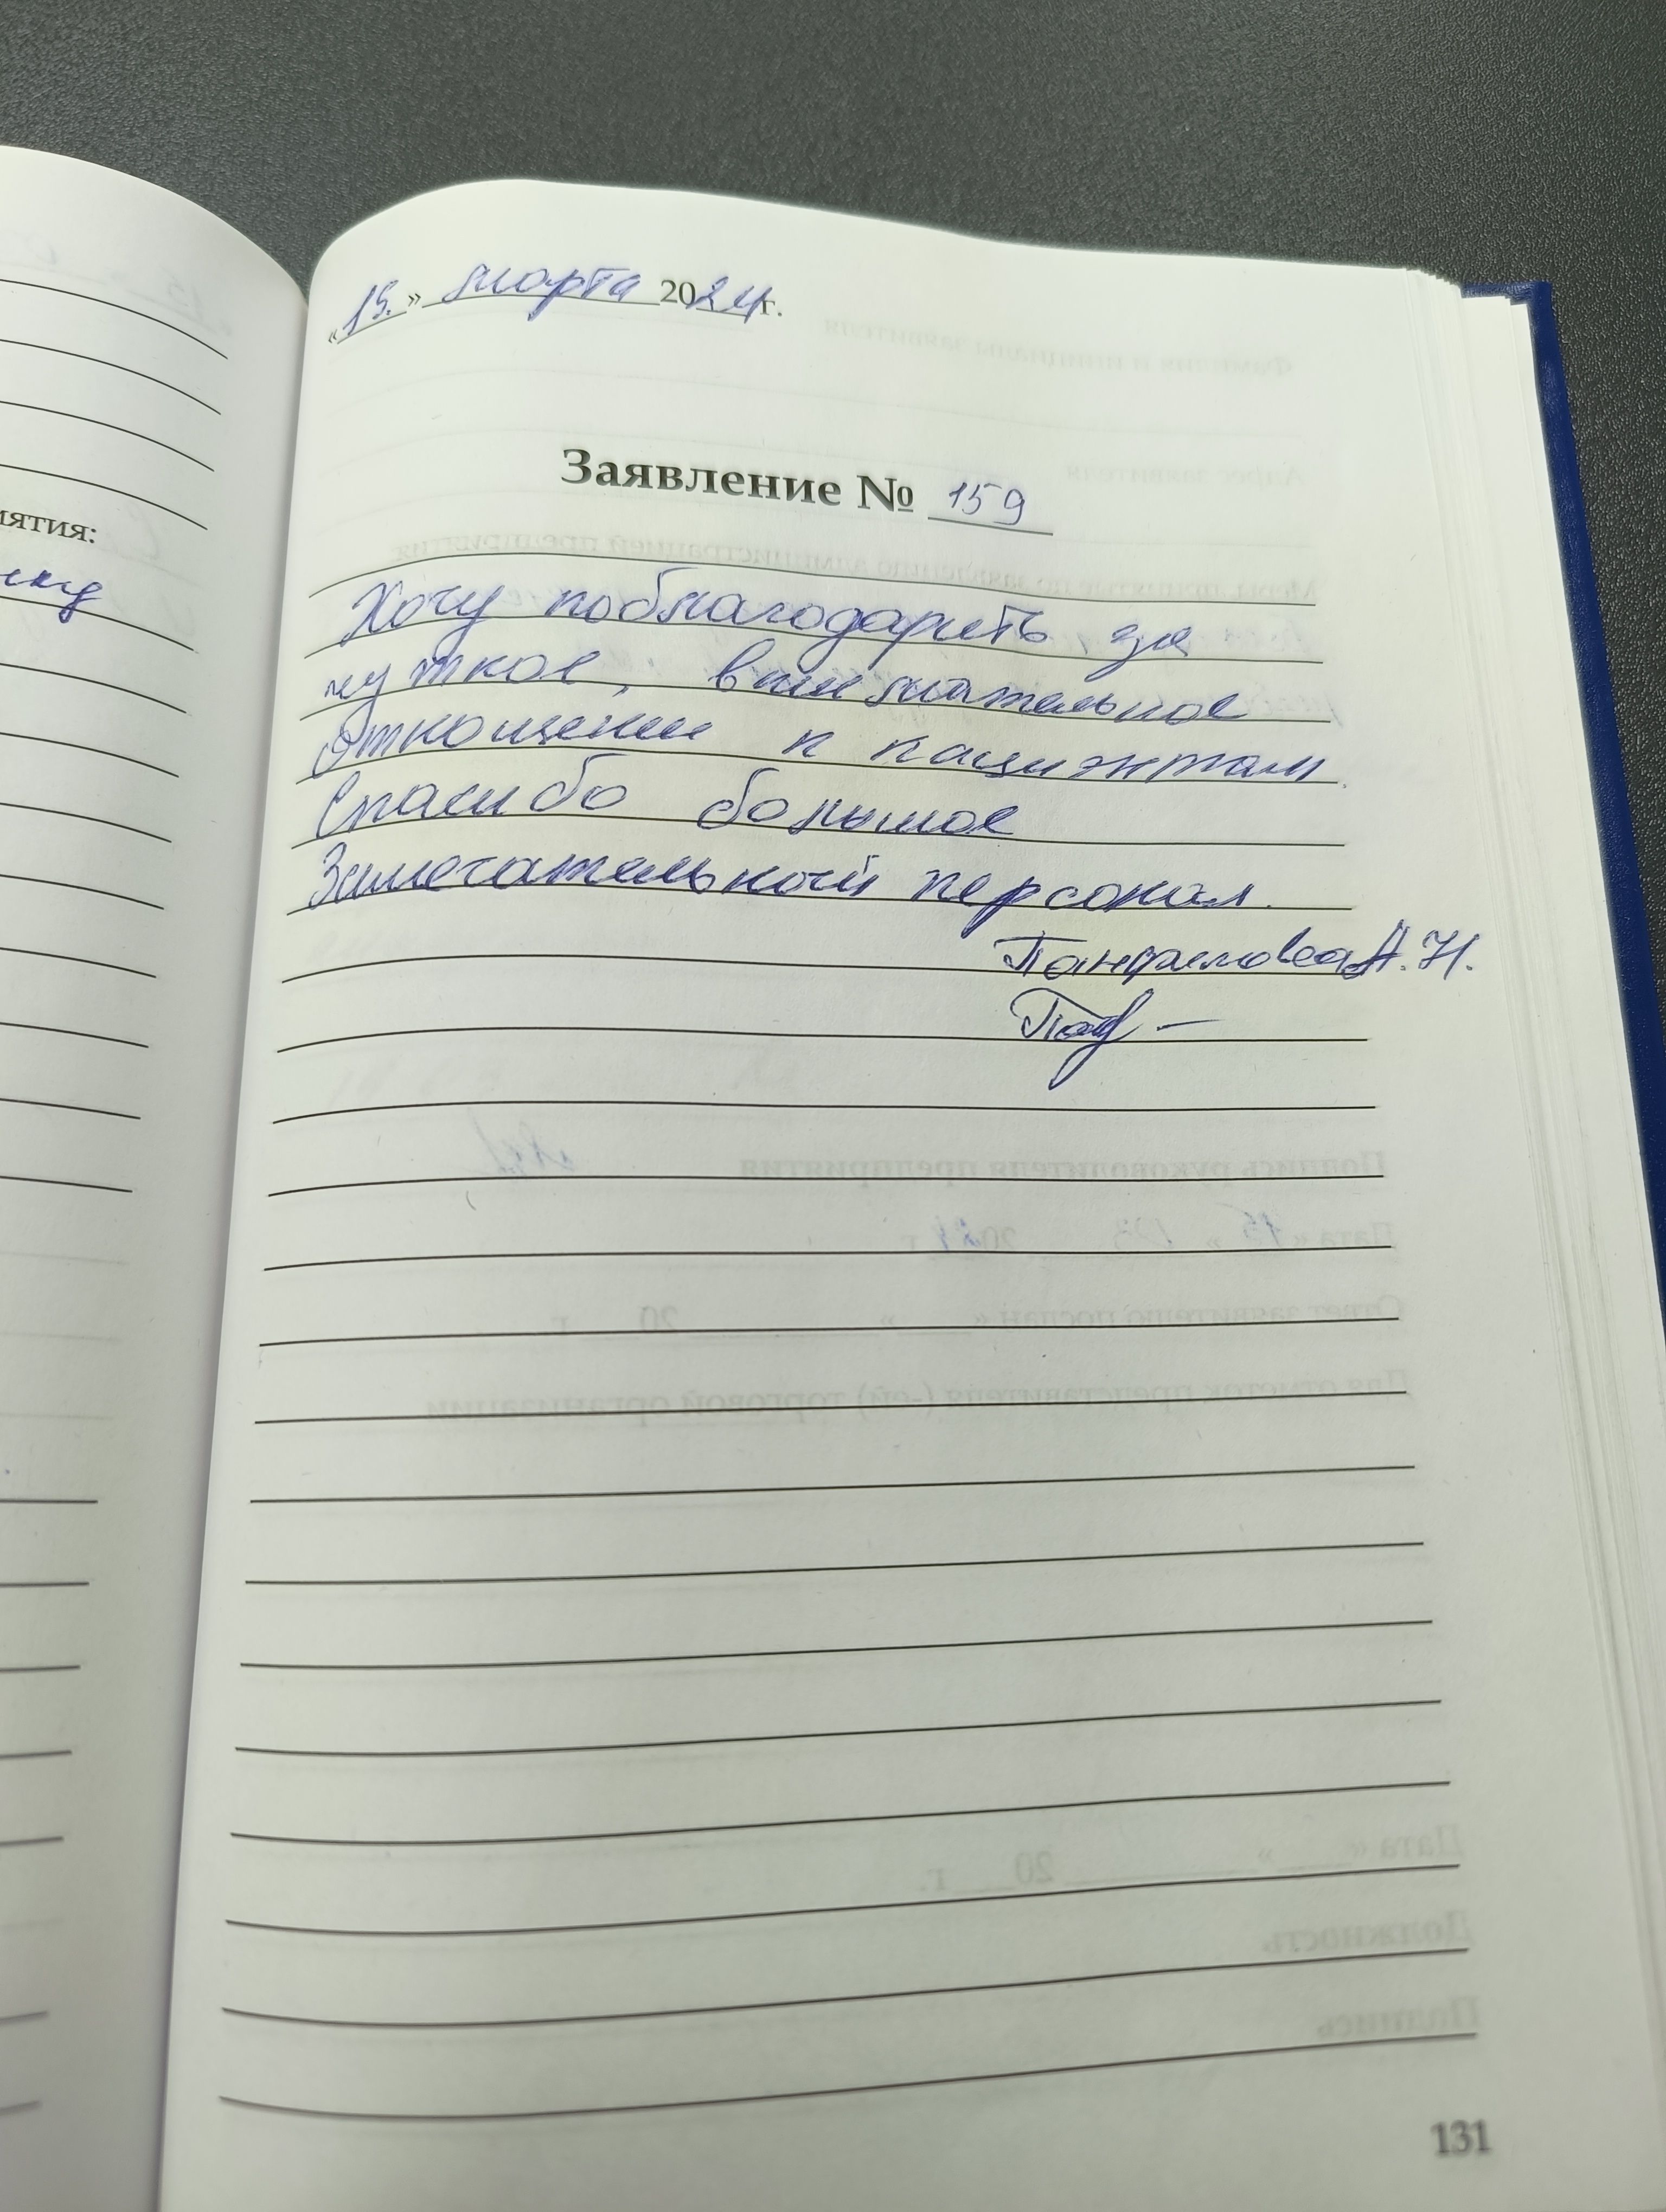 иятия:
«15.» марта 2024г.
Заявление № 159
Хочу поблагодарить за
чуткое, внимательное
отношение к пациентам.
Спасибо большое
Замечательный персонал.
Панфилова А.Н.
131